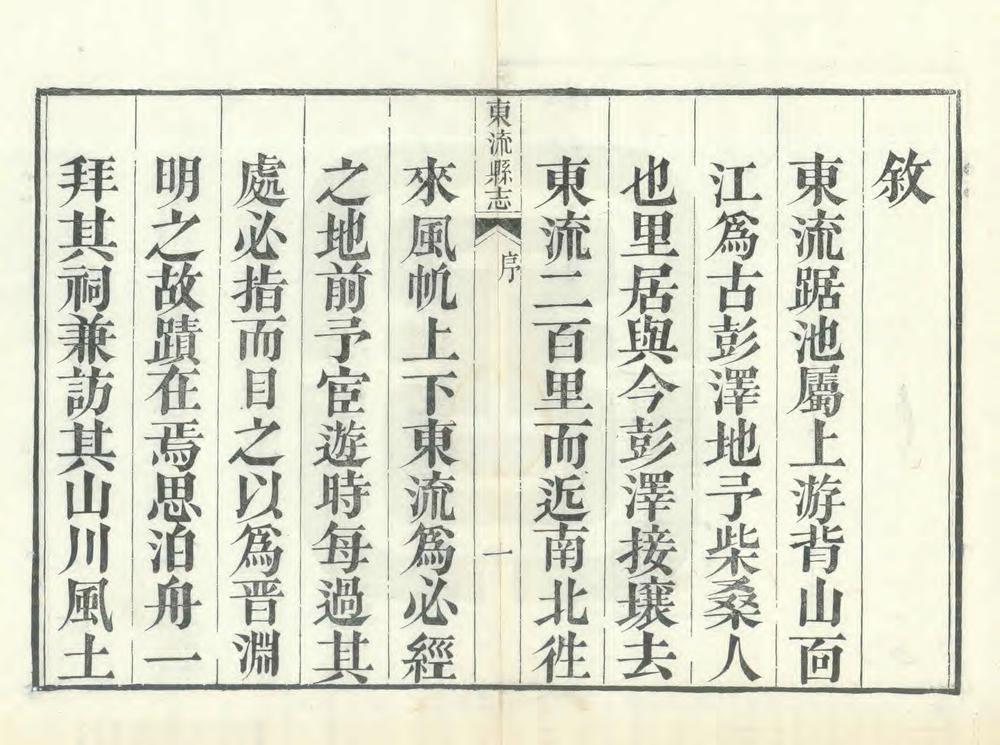 敘
東流踞池屬上游背山面
江爲古彭澤地予柴桑人
也里居與今彭澤接壤去
東流二百里而近南北徃
東流縣志
序
一
來風帆上下東流爲必經
之地前予宦遊時每過其
處必指而目之以爲晋淵
明之故蹟在焉思泊舟一
拜其祠兼訪其山川風土